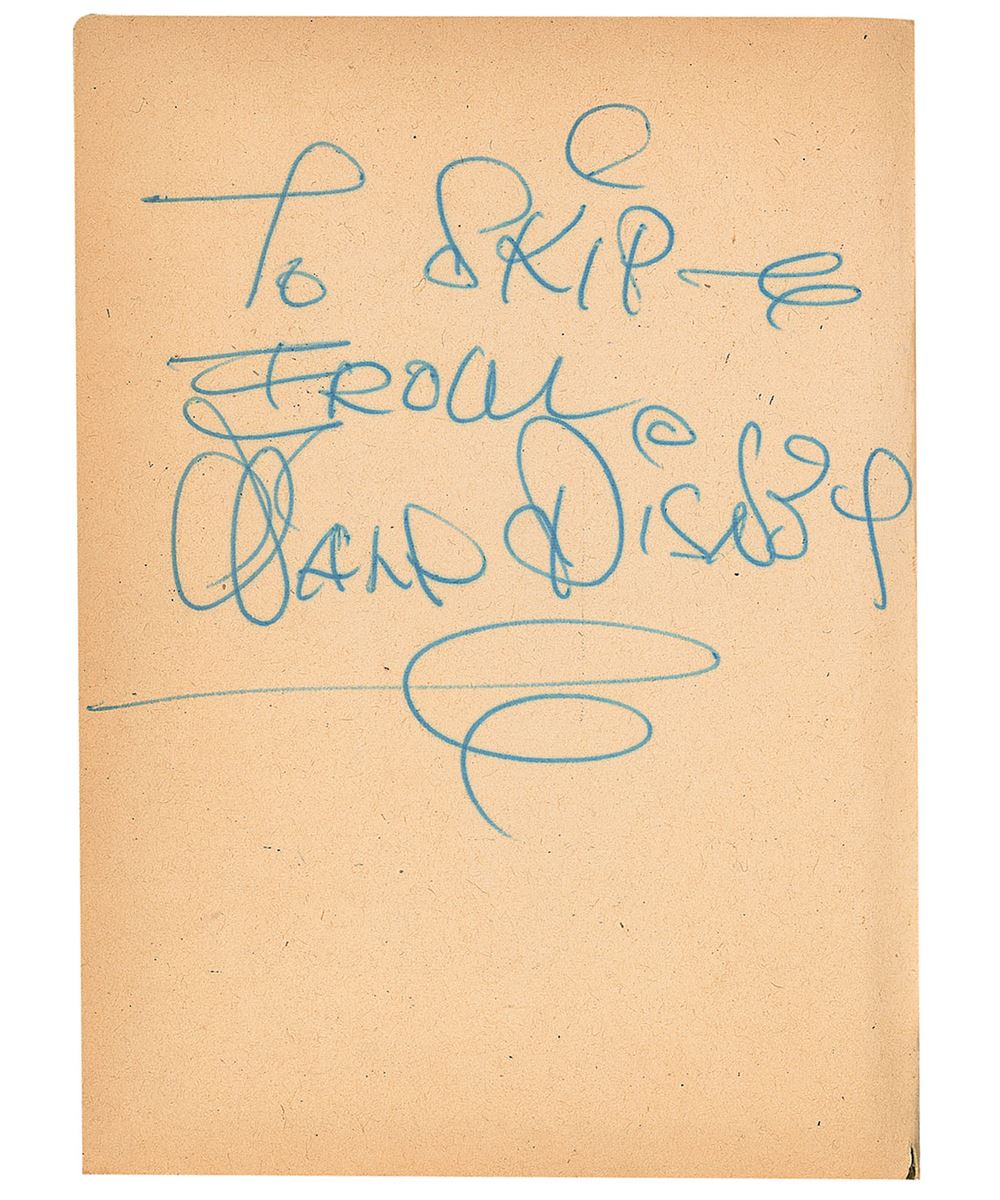 To Skip —
From
Walt Disney